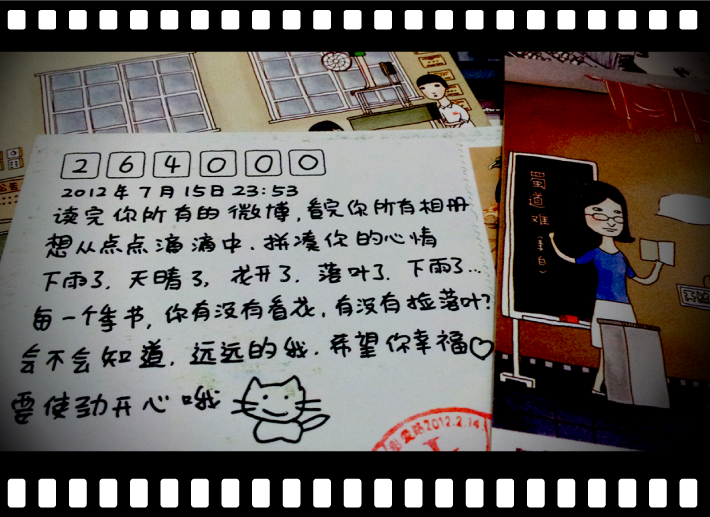 264000
2012年7月15日23:53
读完你所有的微博,看完你所有相册
想从点点滴滴中.拼凑你的心情
下雨了.天晴了,花开了.落叶了.下雨了...
每一个季节,你有没有看花,有没有捡落叶?
会不会知道.远远的我.希望你幸福♡
要使劲开心哦
2012.2.14
蜀道难(李白)